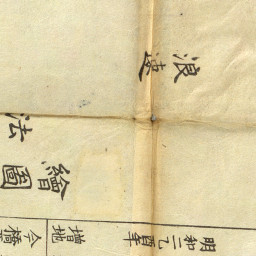 浪速
法
繪圖
明和二乙酉年
増地
今橋